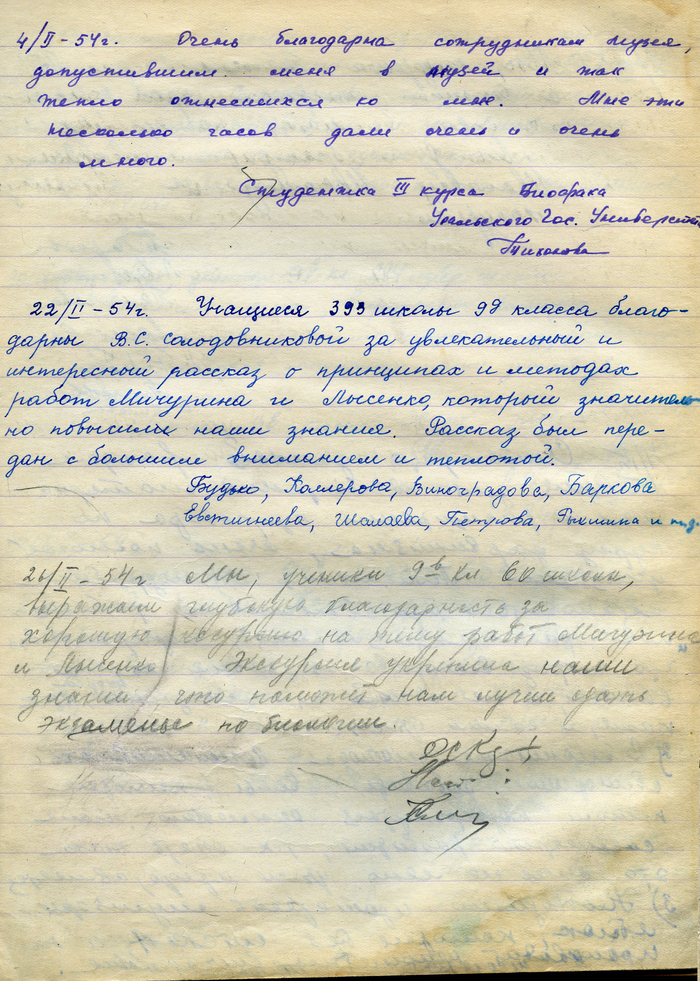 4/II - 54г. Очень благодарна сотрудникам музея,
допустившим меня в музей и так
тепло отнесшихся ко мне. Мне эти
несколько часов дали очень и очень
много.
Студентка III курса Биофака
Уральского Гос. Университ
Тихонова
22/II - 54г. Учащиеся 393 школы 9д класса благо-
дарны В.С. Солодовниковой за увлекательный и
интересный рассказ о принципах и методах
работ Мичурина и Лысенко, который значитель
но повысили наши знания. Рассказ был пере-
дан с большим вниманием и теплотой.
Будько, Коллерова, Виноградова, Баркова
Евстигнеева, Шалаева, Петрова, Рыхлина и т.д.
26/II - 54г. Мы, ученики 9в кл 60 школы,
выражаем глубокую благодарность за
хорошую экскурсию на тему работ Мичурина
и Лысенко. Экскурсия укрепила наши
знания, что поможет нам лучше сдать
экзамены по биологии.